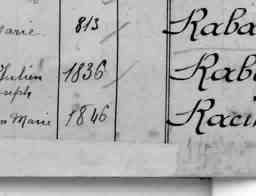 Marie 813 Raba
Julien 1836 Rab
Joseph
Marie 1846 Raci